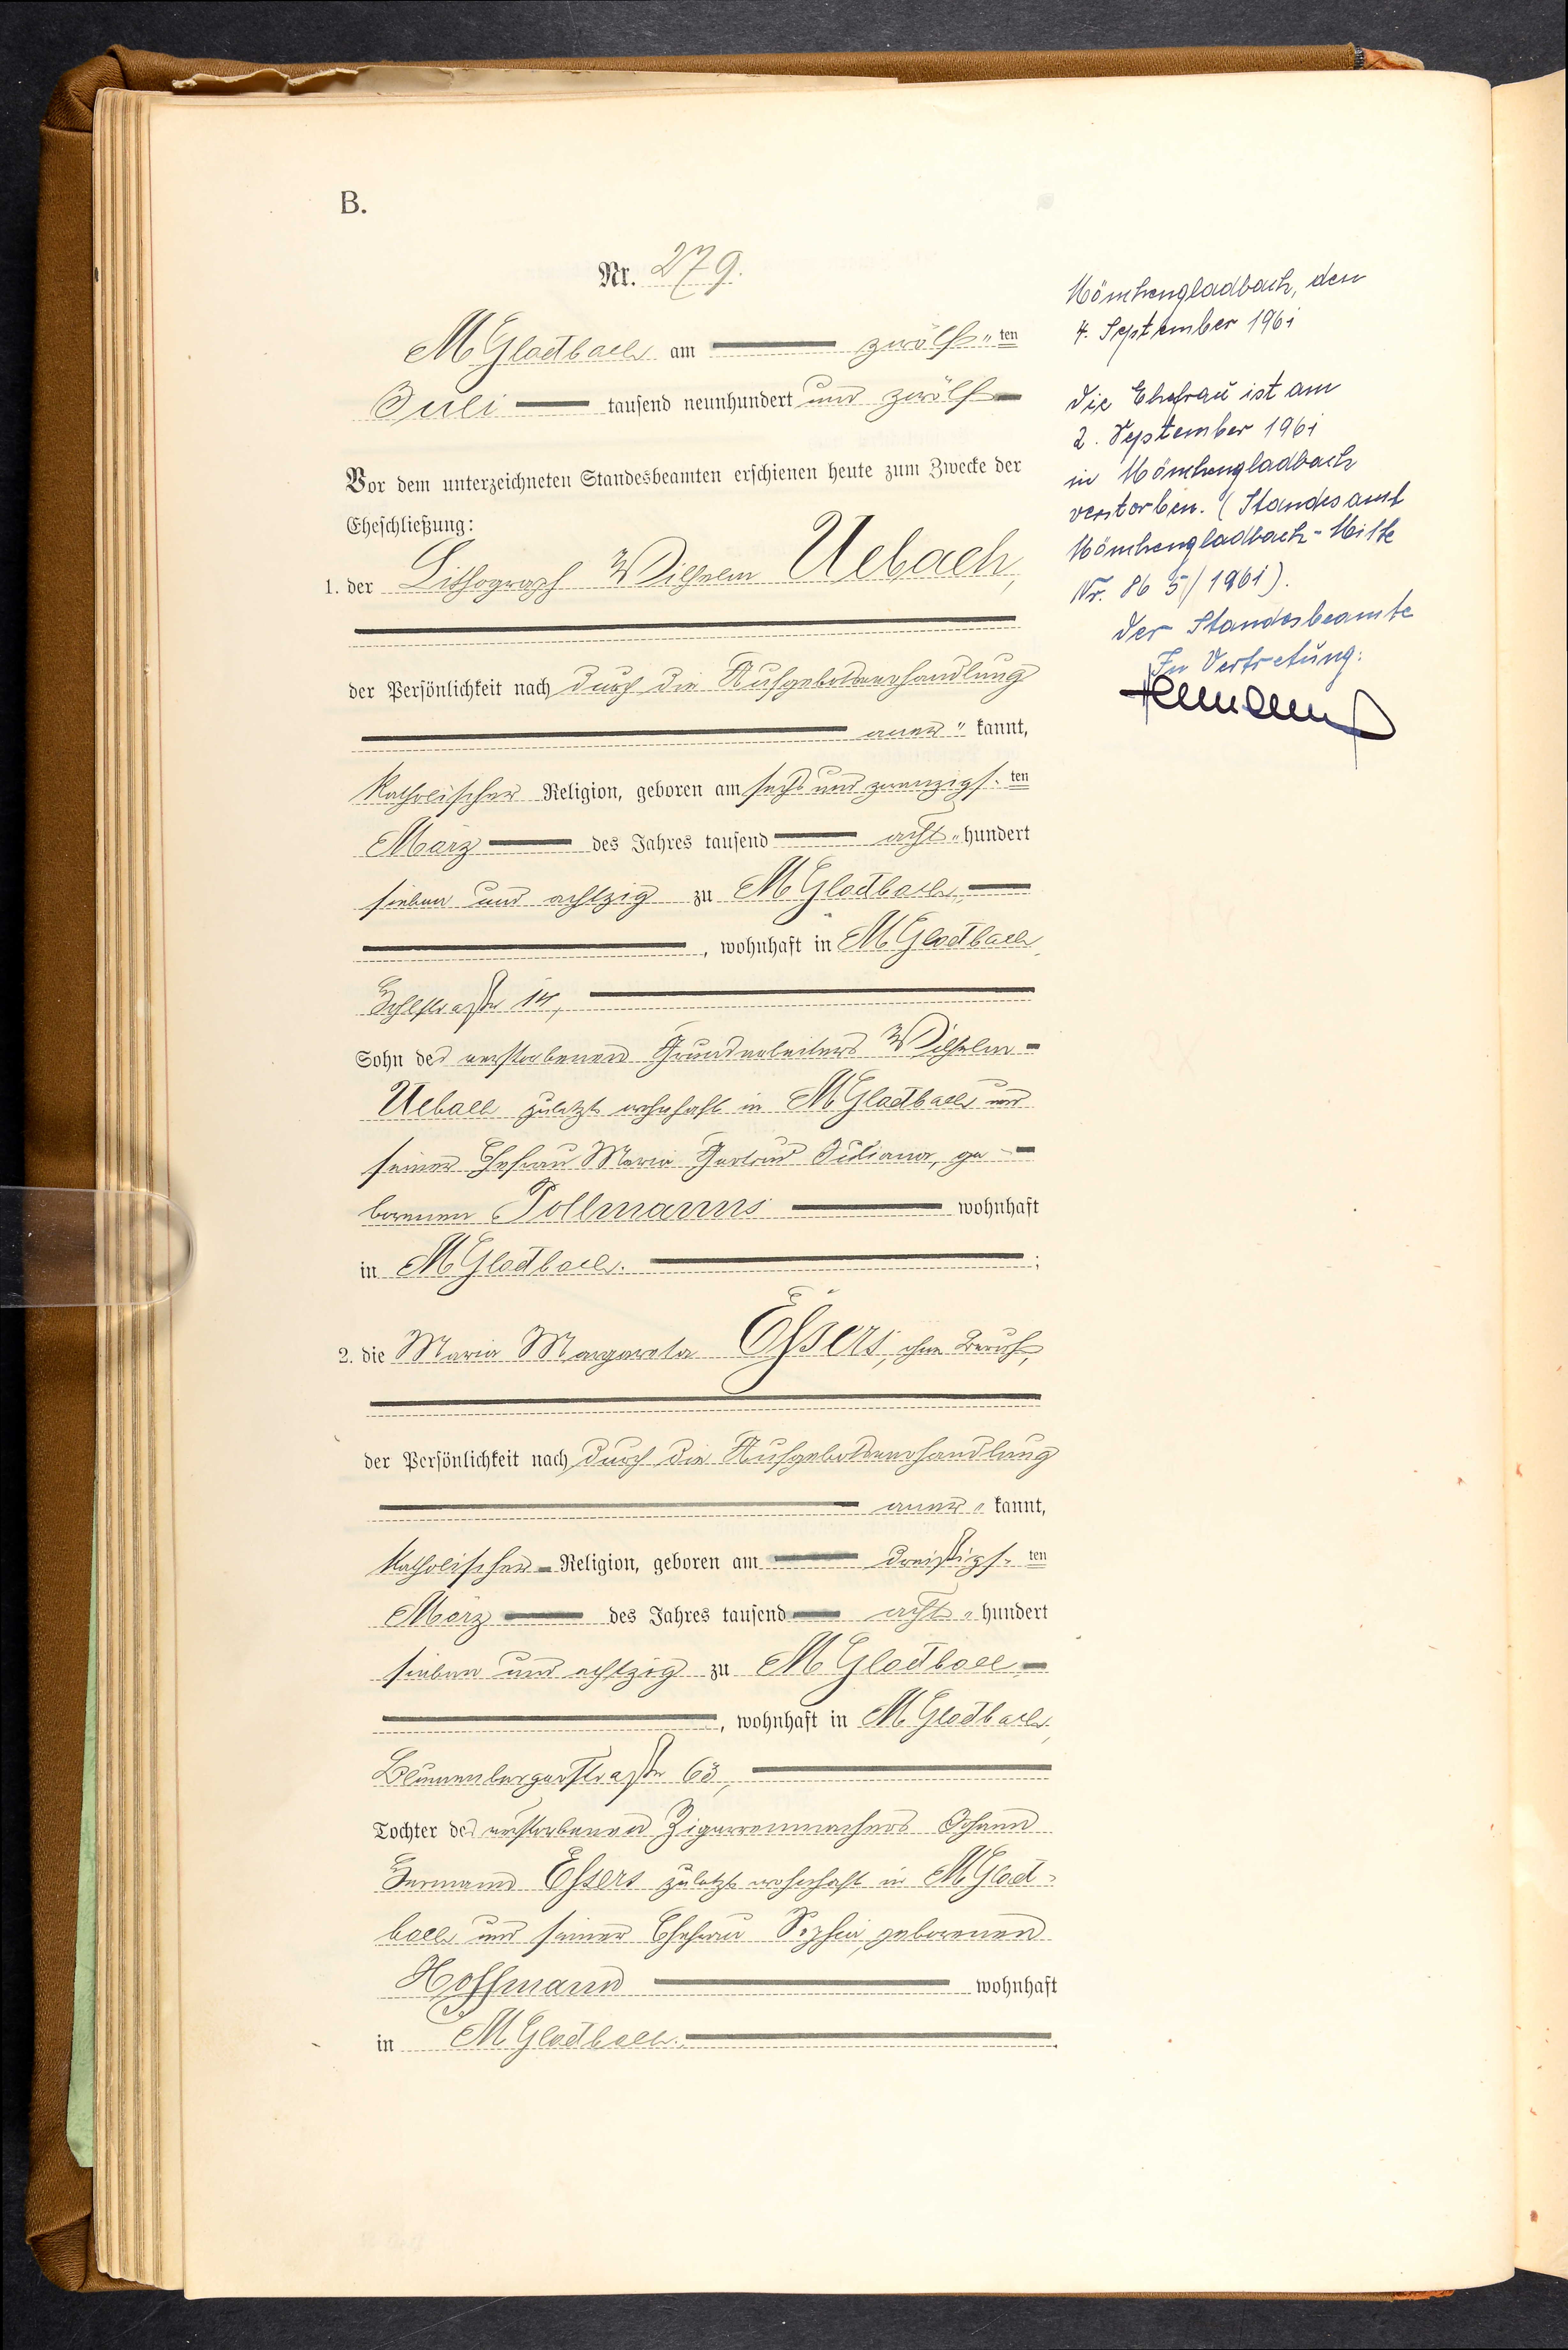 B.
Nr. 279.
M.Gladbach am zwölf„ten
Juli tausend neunhundert und zwölf
Vor dem unterzeichneten Standesbeamten erschienen heute zum Zwecke der
Eheschließung:
1. der Lithograph Wilhelm Uebach,
der Persönlichkeit nach durch die Aufgebotsverhandlung
aner„kannt,
katholischer Religion, geboren am sechs und zwanzigs„ten
März des Jahres tausend acht„hundert
sieben und achtzig zu M.Gladbach,
, wohnhaft in M.Gladbach,
14,
Sohn des verstorbenen Grundarbeiters Wilhelm
Uebach zuletzt wohnhaft in M.Gladbach und
seiner Ehefrau Maria Gertrud Juliana, ge-
borenen Pollmanns wohnhaft
in M.Gladbach. ;
2. die Maria Margareta Essers, ohne Beruf,
der Persönlichkeit nach durch die Aufgebotsverhandlung
aner„kannt,
katholischer Religion, geboren am dreißigs„ten
März des Jahres tausend acht„hundert
sieben und achtzig zu M.Gladbach
, wohnhaft in M.Gladbach,
Blumenbergerstraße 63,
Tochter des verstorbenen Zigarrenmachers Johann
Hermann Essers zuletzt wohnhaft in M.Glad-
bach und seiner Ehefrau Sophia, geborenen
Hoffmann wohnhaft
in M.Gladbach.
Mönchengladbach, den
4. September 1961
Die Ehefrau ist am
2. September 1961
in Mönchengladbach
verstorben. (Standesamt
Mönchengladbach-Mitte
Nr. 865/1961).
Der Standesbeamte
In Vertretung: